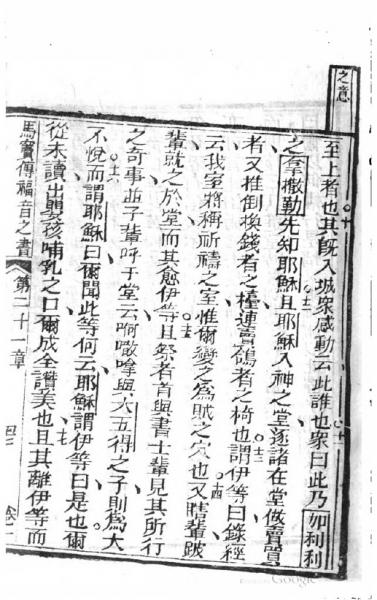 之意
至上者也其既入城眾感動云此誰也眾曰此乃加利利
之拿撒勒先知耶穌且耶穌入神之堂逐諸在堂做買賣
者又推倒換錢者之檯連賣鴿者之椅也謂伊等曰錄經
云我室將稱祈禱之室惟爾變之為賊之穴也又瞎輩跛
輩就之於堂而其愈伊等且祭者首與書士輩見其所行
之奇事並子輩呼于堂云啊噉嗱與大五得之子則為大
不悅而謂耶穌曰爾聞此等何云耶穌謂伊等曰是也爾
從未讀出嬰孩哺乳之口爾成全讚美也且其離伊等而
馬寶傳福音之書 第二十一章
Google